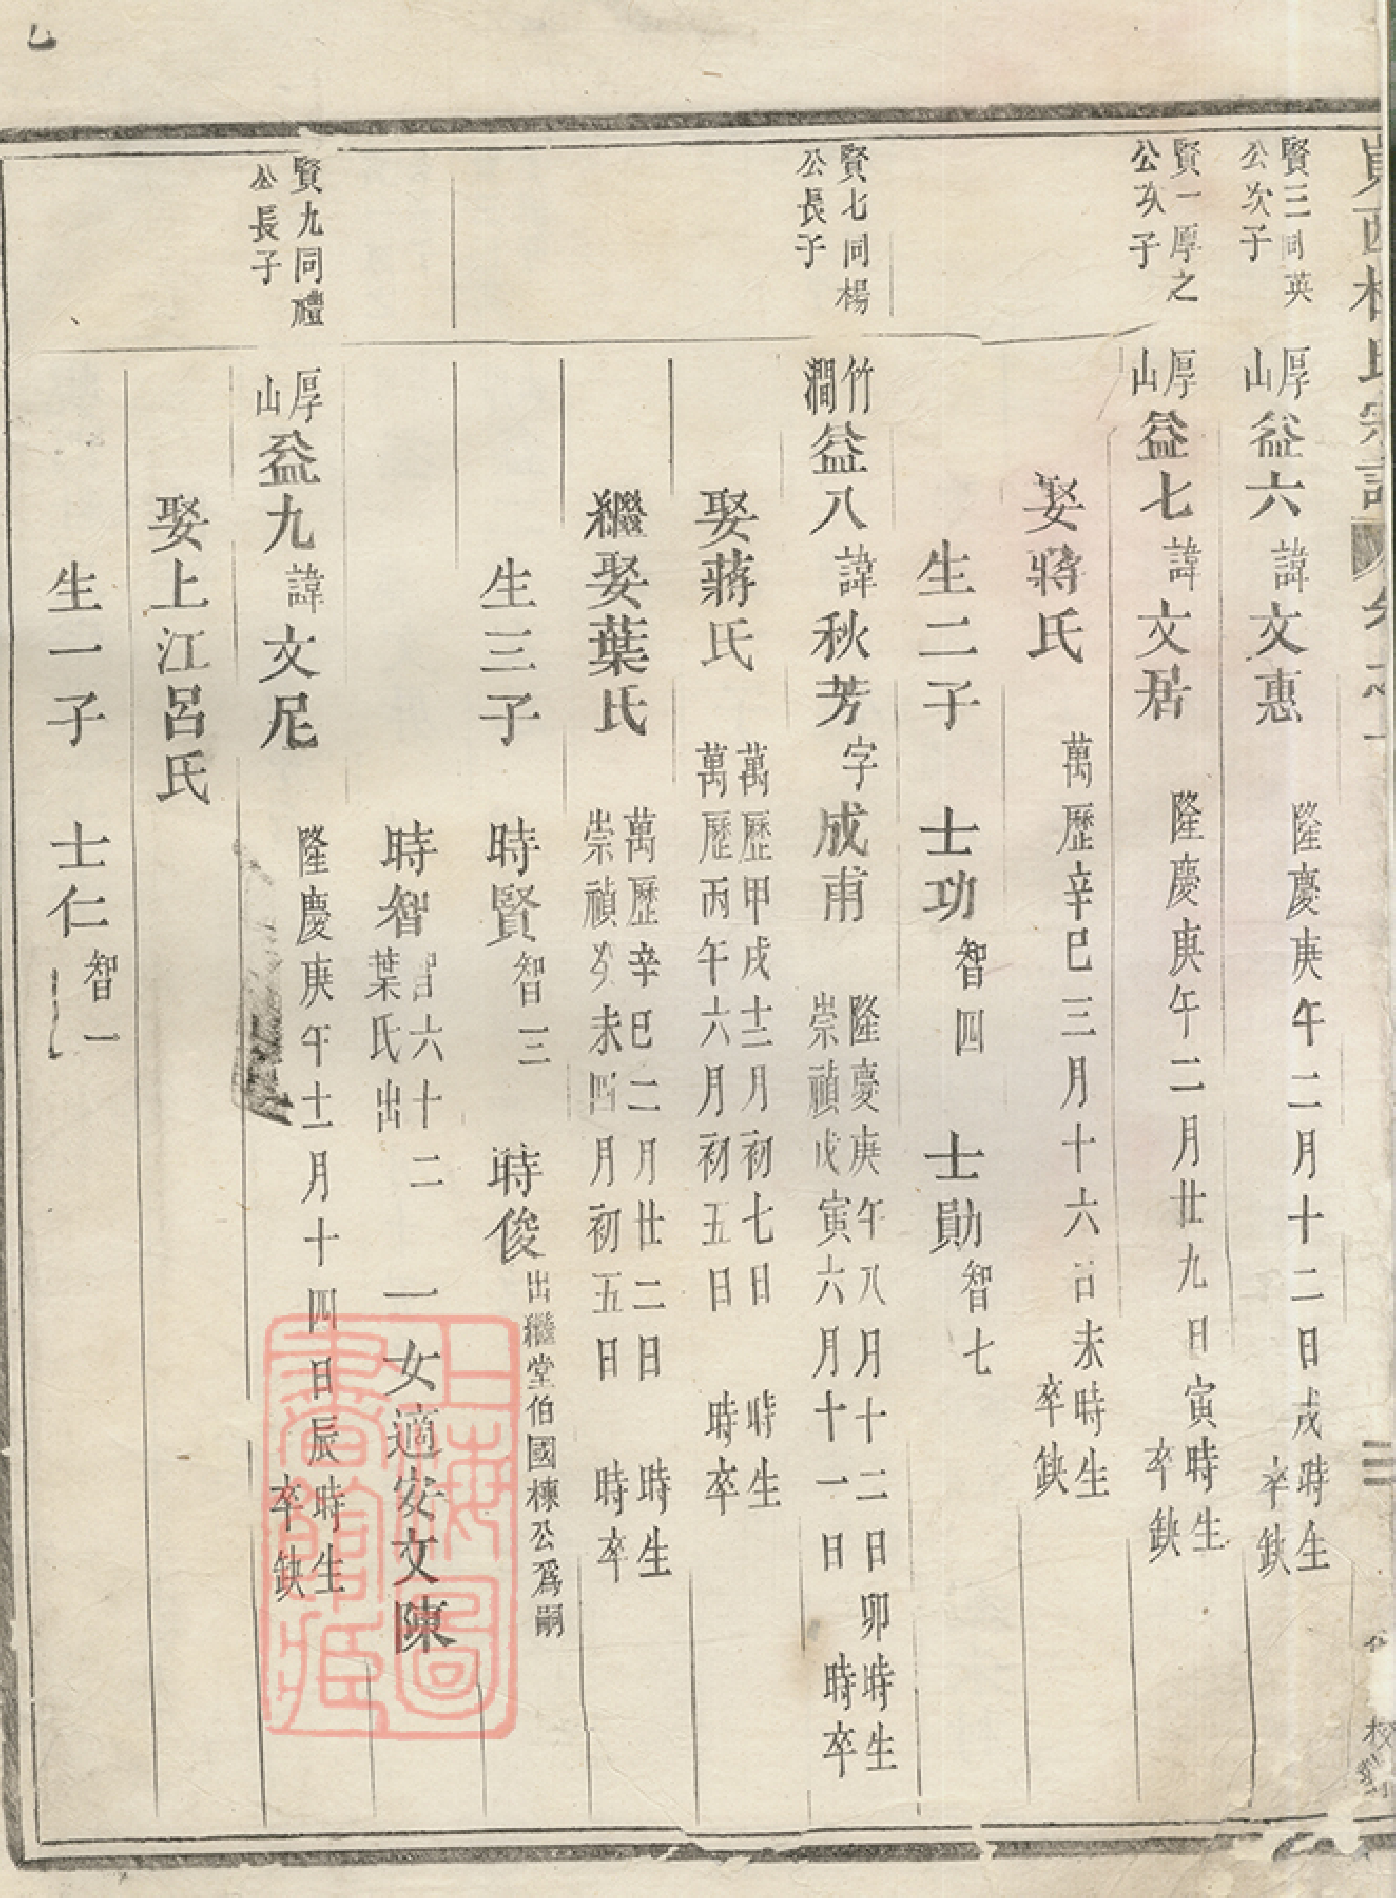 賢三同英
公次子
厚
山
益六諱文惠 隆慶庚午二月十二日戌時生
卒缺
賢一厚之
公次子
厚
山
益七諱文居 隆慶庚午二月廿九日寅時生
卒缺
娶蔣氏 萬歷辛巳三月十六日未時生
卒缺
生二子 士功智四 士勛智七
賢七同楊
公長子
竹
澗
益八諱秋芳字成甫 隆慶庚午八月十二日卯時生
崇禎戊寅六月十一日 時卒
娶蔣氏 萬歷甲戌十二月初七日 時生
萬歷丙午六月初五日 時卒
繼娶葉氏 萬歷辛巳二月廿二日 時生
崇禎癸未四月初五日 時卒
生三子 時賢智三 時俊出繼堂伯國棟公爲嗣
時智智六十二
葉氏出
一女適安文陳
賢九同禮
公長子
厚
山
益九諱文尼 隆慶庚午十二月十四日辰時生
卒缺
娶上江呂氏
生一子 士仁智一
上海圖書館藏